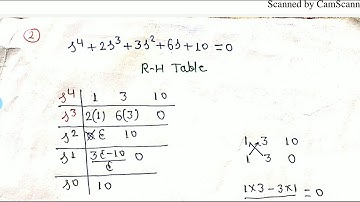 Scanned by CamScann
2
s⁴ + 2s³ + 3s² + 6s + 10 = 0
R-H Table
s⁴ 1 3 10
s³ 2(1) 6(3) 0
s² ε 10
s¹ 3ε-10/ε 0
s⁰ 10
1 3 10
1 3 0
1×3 - 3×1 = 0